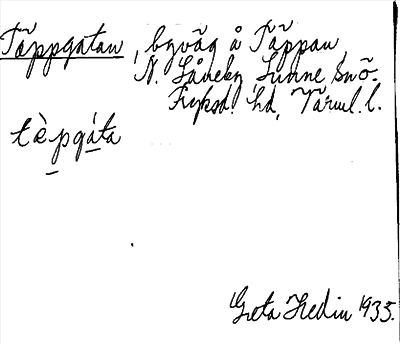 Täppgatan, byväg å Täppan,
N. Låneby Sunne Snö.
Fryksd. hd, Värml. l.
tȅpgáta
Greta Hedin 1935.